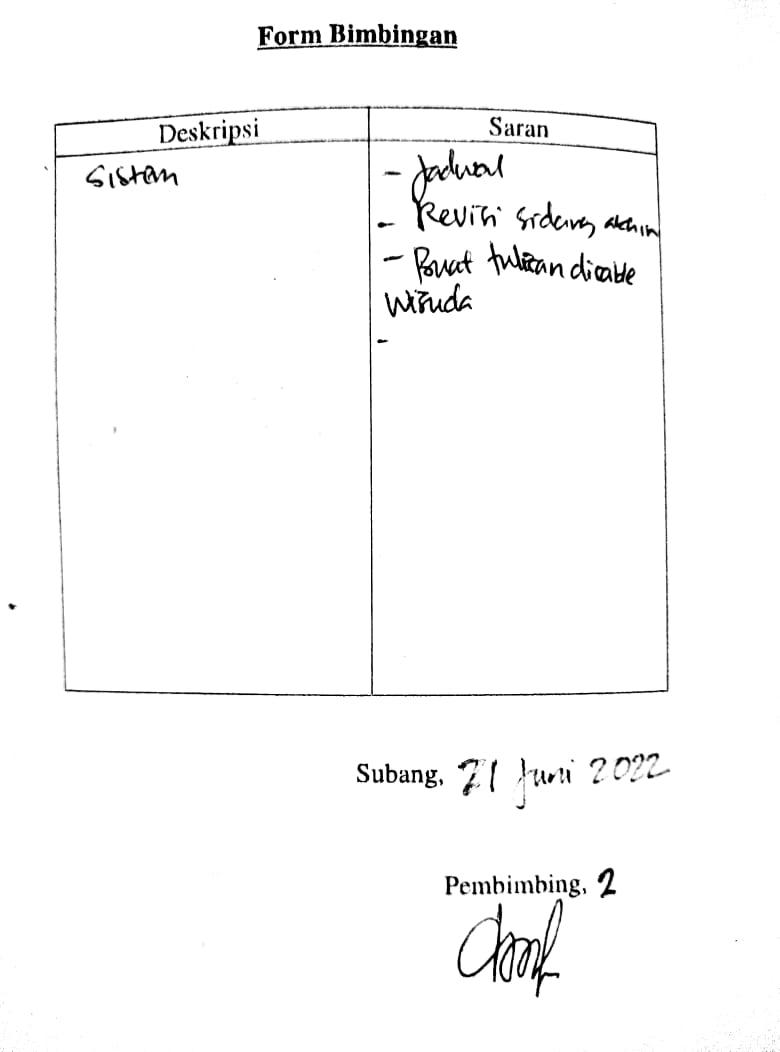 Form Bimbingan
Deskripsi Saran
Sistem - Jadwal
- Revisi sidang akhir
- Buat tulisan disable
Wisuda
-
Subang, 21 Juni 2022
Pembimbing, 2